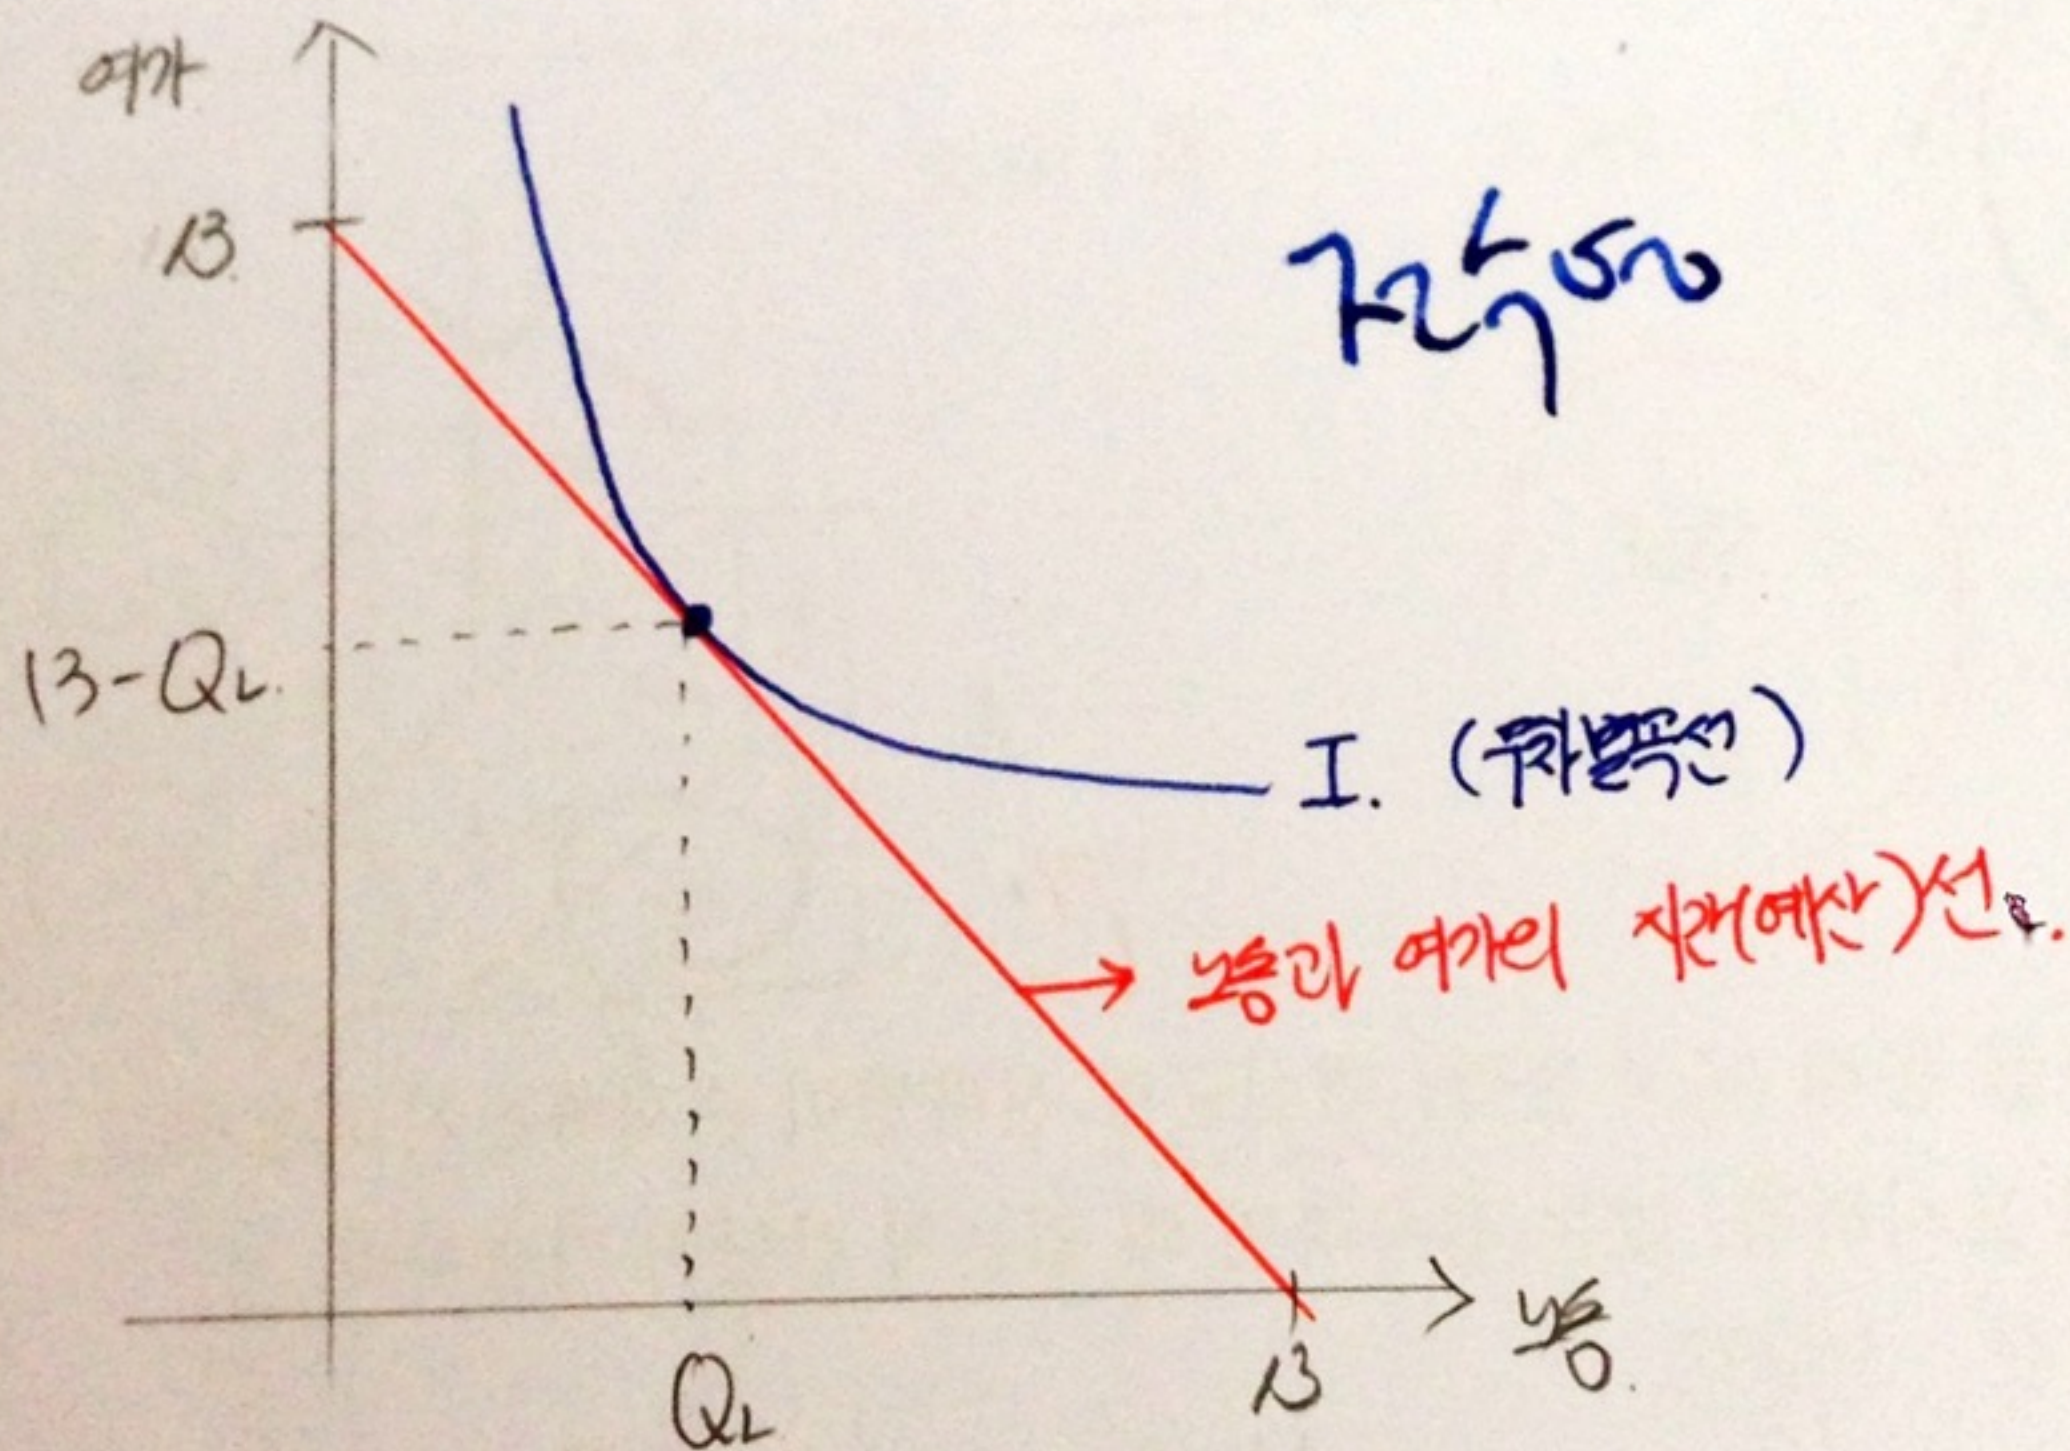 여가
13
13-QL.
I. (무차별곡선)
노동과 여가의 시간(예산)선.
QL
13
노동.